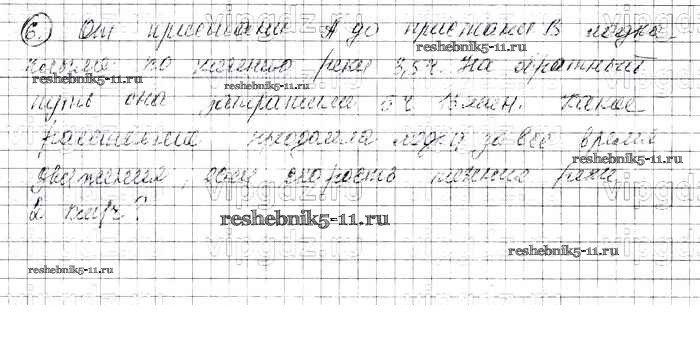 6. От пристани А до пристани В лодка
reshebnik5-11.ru
плыла по течению реки 3,5ч. На обратный
reshebnik5-11.ru
путь она затратила 5ч 15мин. Какое
расстояние преодолела лодка за все время
reshebnik5-11.ru
движения, если скорость течения реки
2 км/ч?
reshebnik5-11.ru
reshebnik5-11.ru
reshebnik5-11.ru